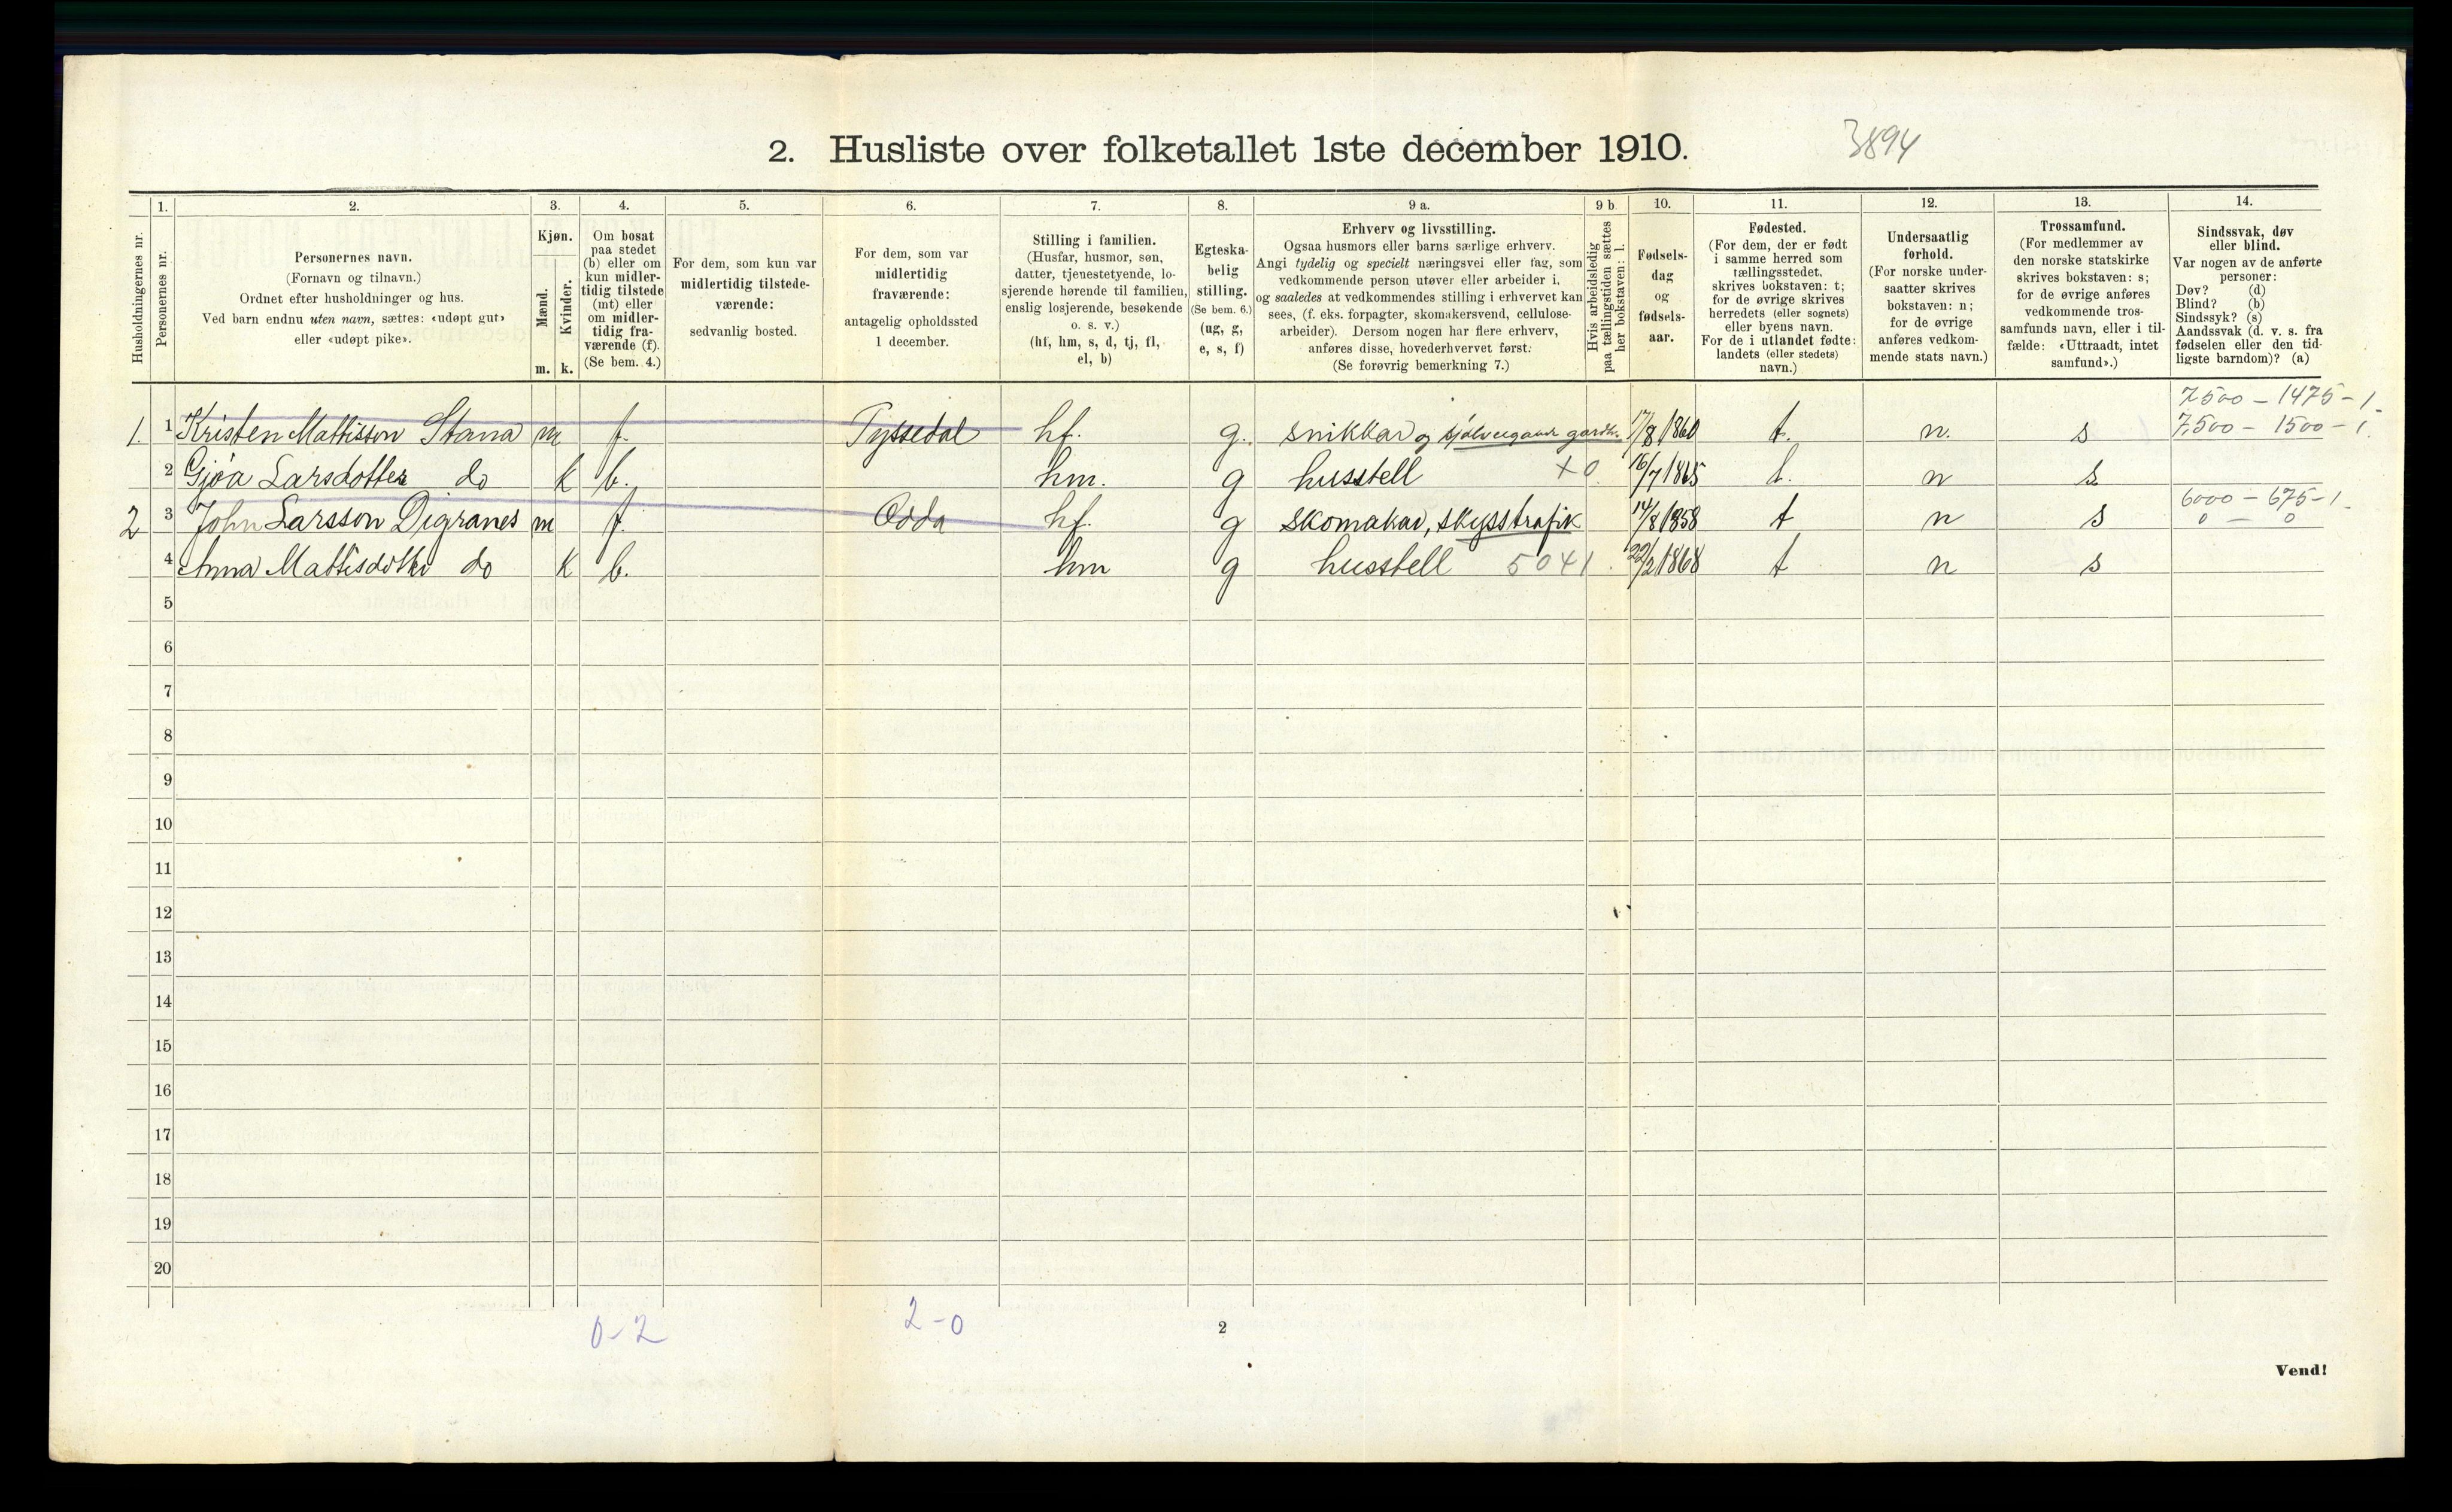 2. Husliste over folketallet 1ste december 1910.
3894
Husholdningernes nr.
1.
Personernes nr.
2.
Personernes navn.
(Fornavn og tilnavn.)
Ordnet efter husholdninger og hus.
Ved barn endnu uten navn, sættes: «udøpt gut»
eller «udøpt pike».
3.
Kjøn.
Mænd.
Kvinder.
m. k.
4.
Om bosat
paa stedet
(b) eller om
kun midler-
tidig tilstede
(mt) eller
om midler-
tidig fra-
værende (f).
(Se bem. 4.)
5.
For dem, som kun var
midlertidig tilstede-
værende:
sedvanlig bosted.
6.
For dem, som var
midlertidig
fraværende:
antagelig opholdssted
1 december.
7.
Stilling i familien.
(Husfar, husmor, søn,
datter, tjenestetyende, lo-
sjerende hørende til familien,
enslig losjerende, besøkende
o. s. v.)
(hf, hm, s, d, tj, fl,
el, b)
8.
Egteska-
belig
stilling.
(Se bem. 6.)
(ug, g,
e, s, f)
9 a.
Erhverv og livsstilling.
Ogsaa husmors eller barns særlige erhverv.
Angi tydelig og specielt næringsvei eller fag, som
vedkommende person utøver eller arbeider i,
og saaledes at vedkommendes stilling i erhvervet kan
sees, (f. eks. forpagter, skomakersvend, cellulose-
arbeider). Dersom nogen har flere erhverv,
anføres disse, hovederhvervet først.
(Se forøvrig bemerkning 7.)
9 b.
Hvis arbeidsledig
paa tællingstiden sættes
her bokstaven: l.
10.
Fødsels-
dag
og
fødsels-
aar.
11.
Fødested.
(For dem, der er født
i samme herred som
tællingsstedet,
skrives bokstaven: t;
for de øvrige skrives
herredets (eller sognets)
eller byens navn.
For de i utlandet fødte:
landets (eller stedets)
navn.)
12.
Undersaatlig
forhold.
(For norske under-
saatter skrives
bokstaven: n;
for de øvrige
anføres vedkom-
mende stats navn.)
13.
Trossamfund.
(For medlemmer av
den norske statskirke
skrives bokstaven: s;
for de øvrige anføres
vedkommende tros-
samfunds navn, eller i til-
fælde: «Uttraadt, intet
samfund».)
14.
Sindssvak, døv
eller blind.
Var nogen av de anførte
personer:
Døv? (d)
Blind? (b)
Sindssyk? (s)
Aandssvak (d. v. s. fra
fødselen eller den tid-
ligste barndom)? (a)
7500 - 1475 - 1
1. 1 Kristen Mattisson Stana m f. Tyssedal hf. g. snikkar og sjølveigande gardbr. 17/8 1860 t. n. s 7500 - 1500 - 1
2 Gjøa Larsdotter do k b. hm. g husstell x0 16/7 1865 t. n s
6000 - 675 - 1
2 3 John Larsson Digranes m f. Odda hf. g skomakar, skysstrafik 14/8 1858 t n s 0 - 0
4 Anna Mattisdotter do k b. hm g husstell 5041 22/2 1868 t n s
5
6
7
8
9
10
11
12
13
14
15
16
17
18
19
20
0-2
2-0
2
Vend!